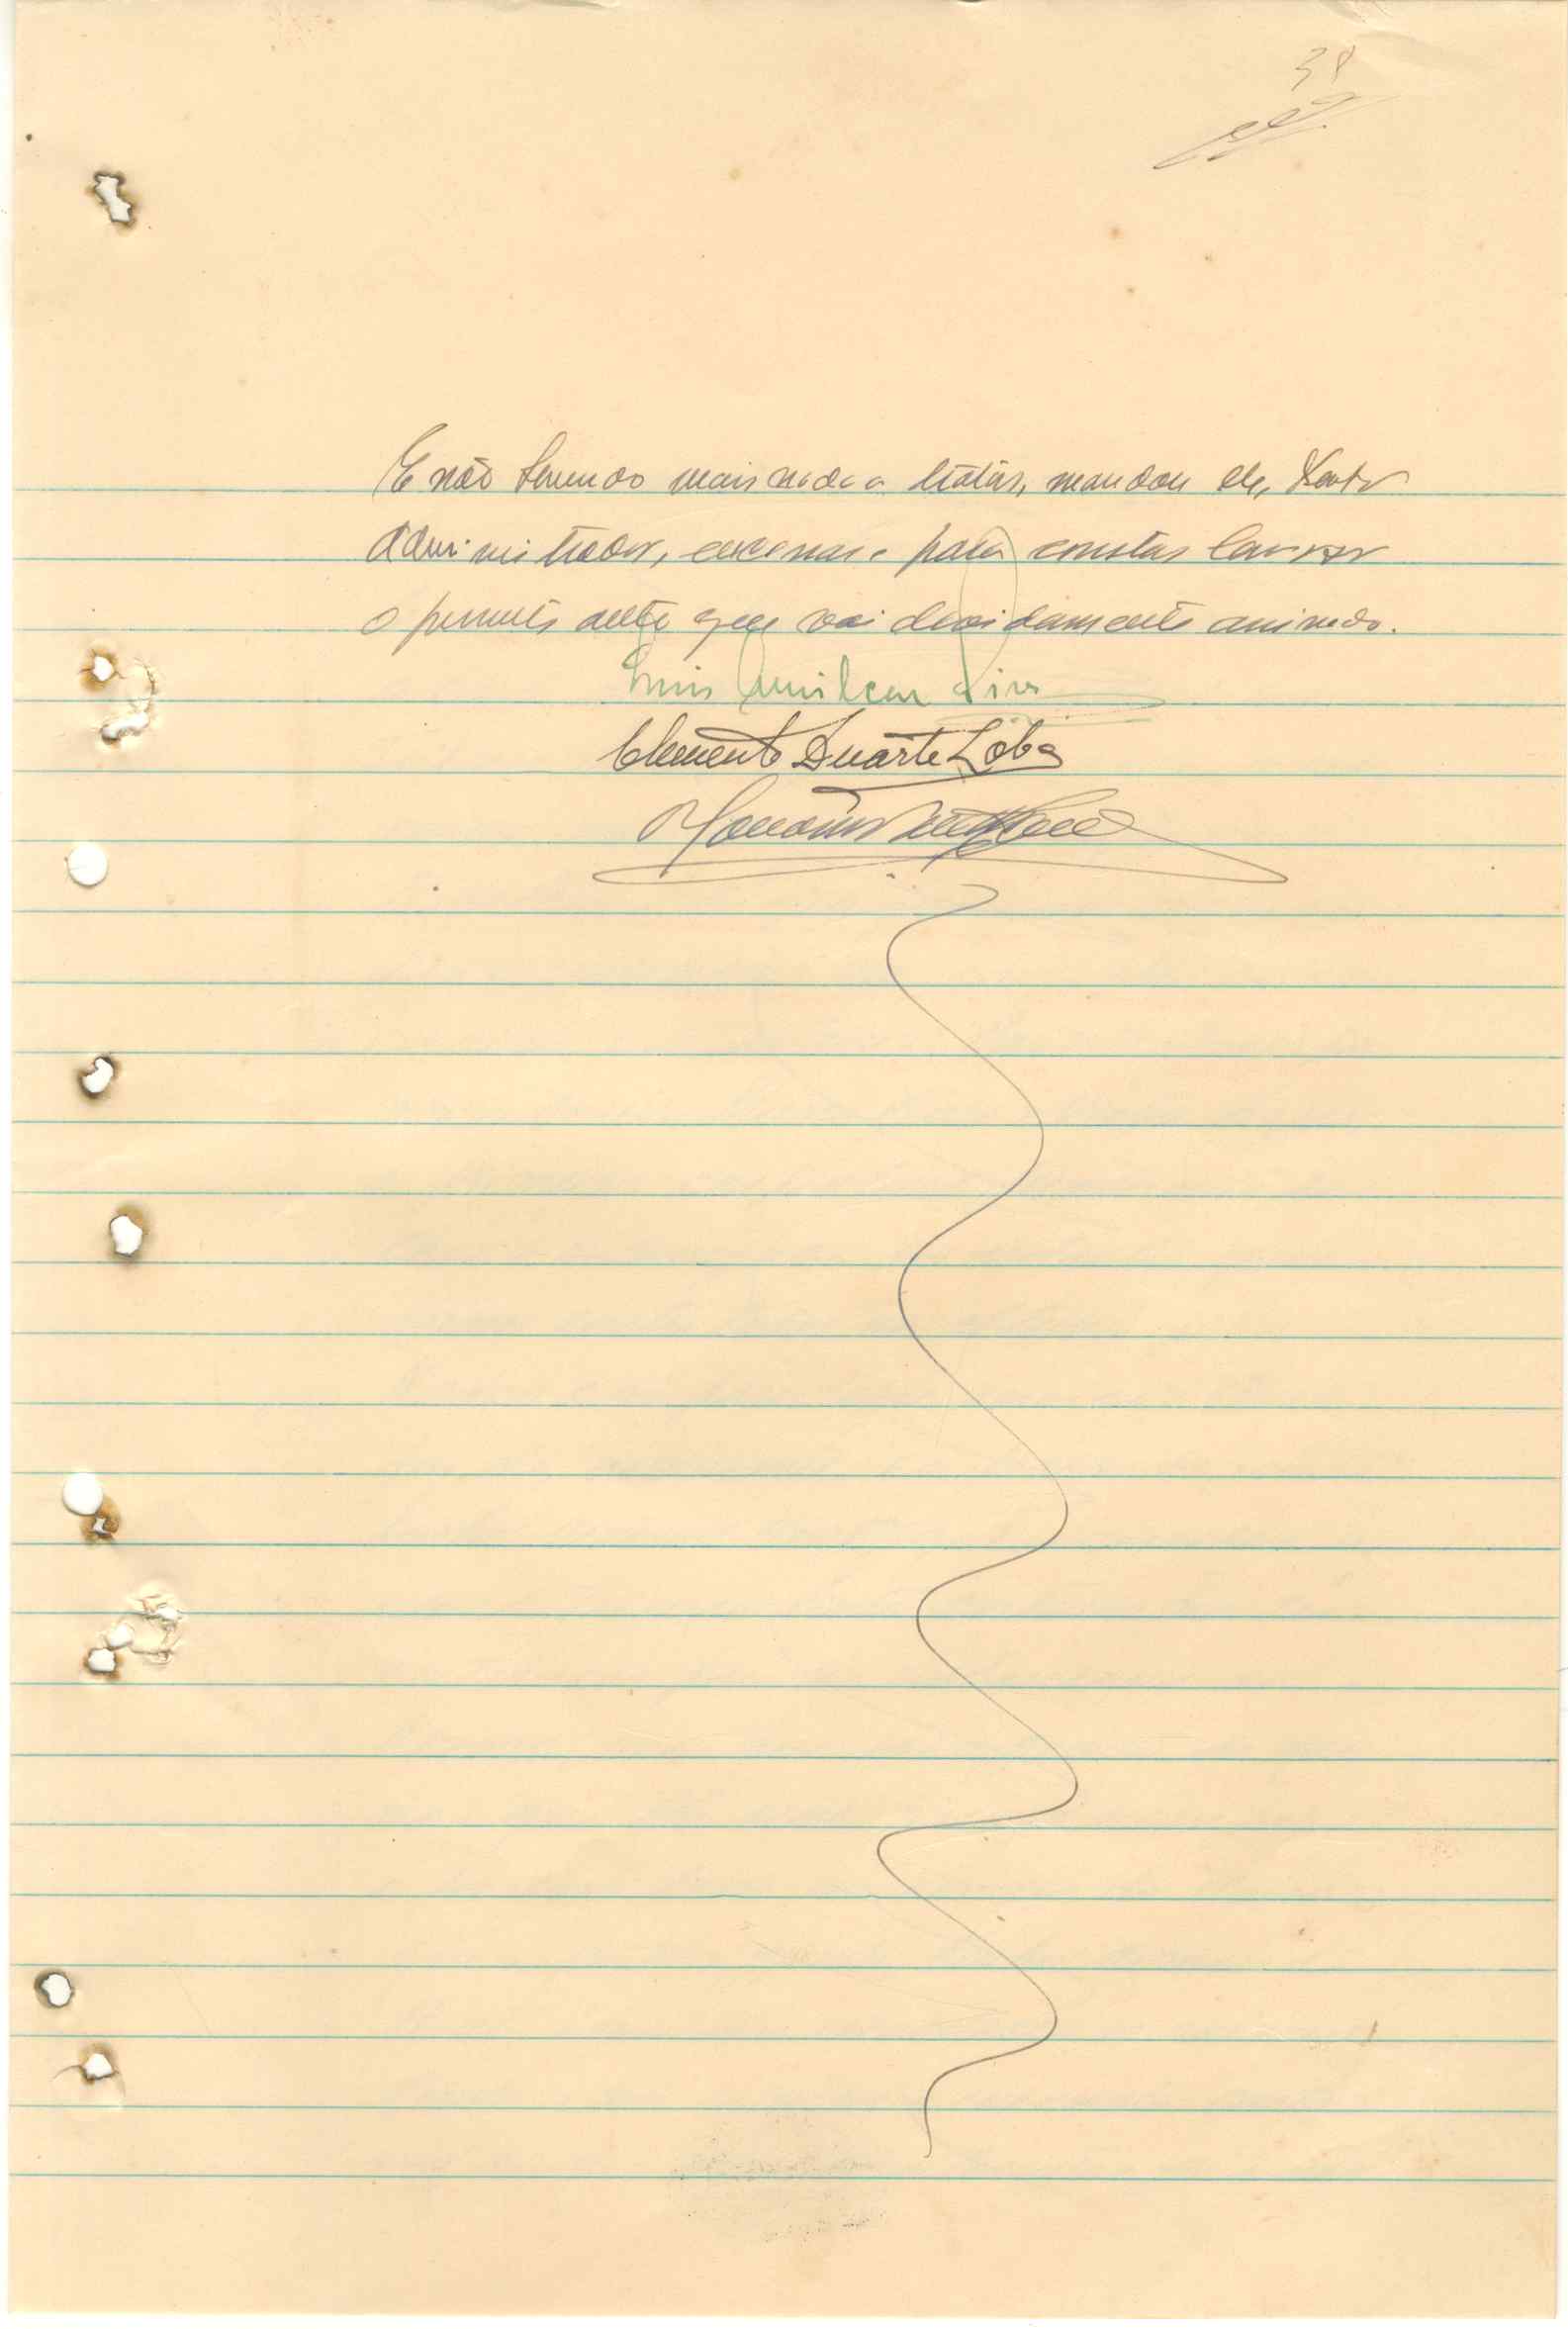 38
E não havendo mais nada a tratar, mandou ele, Senhor
Administrador, encerrar e para constar lavrar
o presente auto que vai devidamente assinado.
Luis Amilcar
Clemente Duarte Lobo